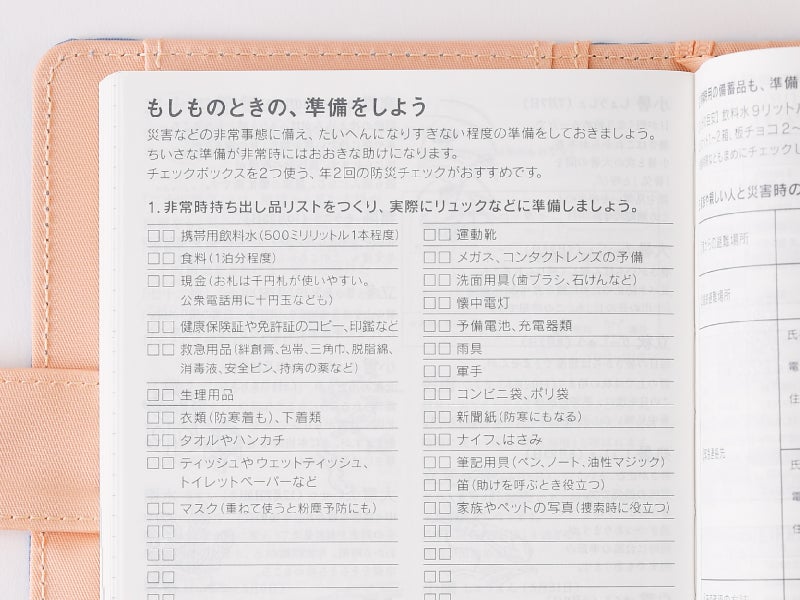 もしものときの、準備をしよう
災害などの非常事態に備え、たいへんになりすぎない程度の準備をしておきましょう。
ちいさな準備が非常時にはおおきな助けになります。
チェックボックスを2つ使う、年2回の防災チェックがおすすめです。
1. 非常時持ち出し品リストをつくり、実際にリュックなどに準備しましょう。
□□ 携帯用飲料水(500ミリリットル1本程度)
□□ 食料(1泊分程度)
□□ 現金(お札は千円札が使いやすい。
公衆電話用に十円玉なども)
□□ 健康保険証や免許証のコピー、印鑑など
□□ 救急用品(絆創膏、包帯、三角巾、脱脂綿、
消毒液、安全ピン、持病の薬など)
□□ 生理用品
□□ 衣類(防寒着も)、下着類
□□ タオルやハンカチ
□□ ティッシュやウェットティッシュ、
トイレットペーパーなど
□□ マスク(重ねて使うと粉塵予防にも)
□□
□□
□□
□□
□□ 運動靴
□□ メガネ、コンタクトレンズの予備
□□ 洗面用具(歯ブラシ、石けんなど)
□□ 懐中電灯
□□ 予備電池、充電器類
□□ 雨具
□□ 軍手
□□ コンビニ袋、ポリ袋
□□ 新聞紙(防寒にもなる)
□□ ナイフ、はさみ
□□ 筆記用具(ペン、ノート、油性マジック)
□□ 笛(助けを呼ぶとき役立つ)
□□ 家族やペットの写真(捜索時に役立つ)
□□
□□
□□
□□
の備蓄品も、準備
飲料水9リット
2箱、板チョコ2〜
まめにチェックし
親しい人と災害時の
避難場所
避難場所
氏
電
住
連絡先
氏
電
住